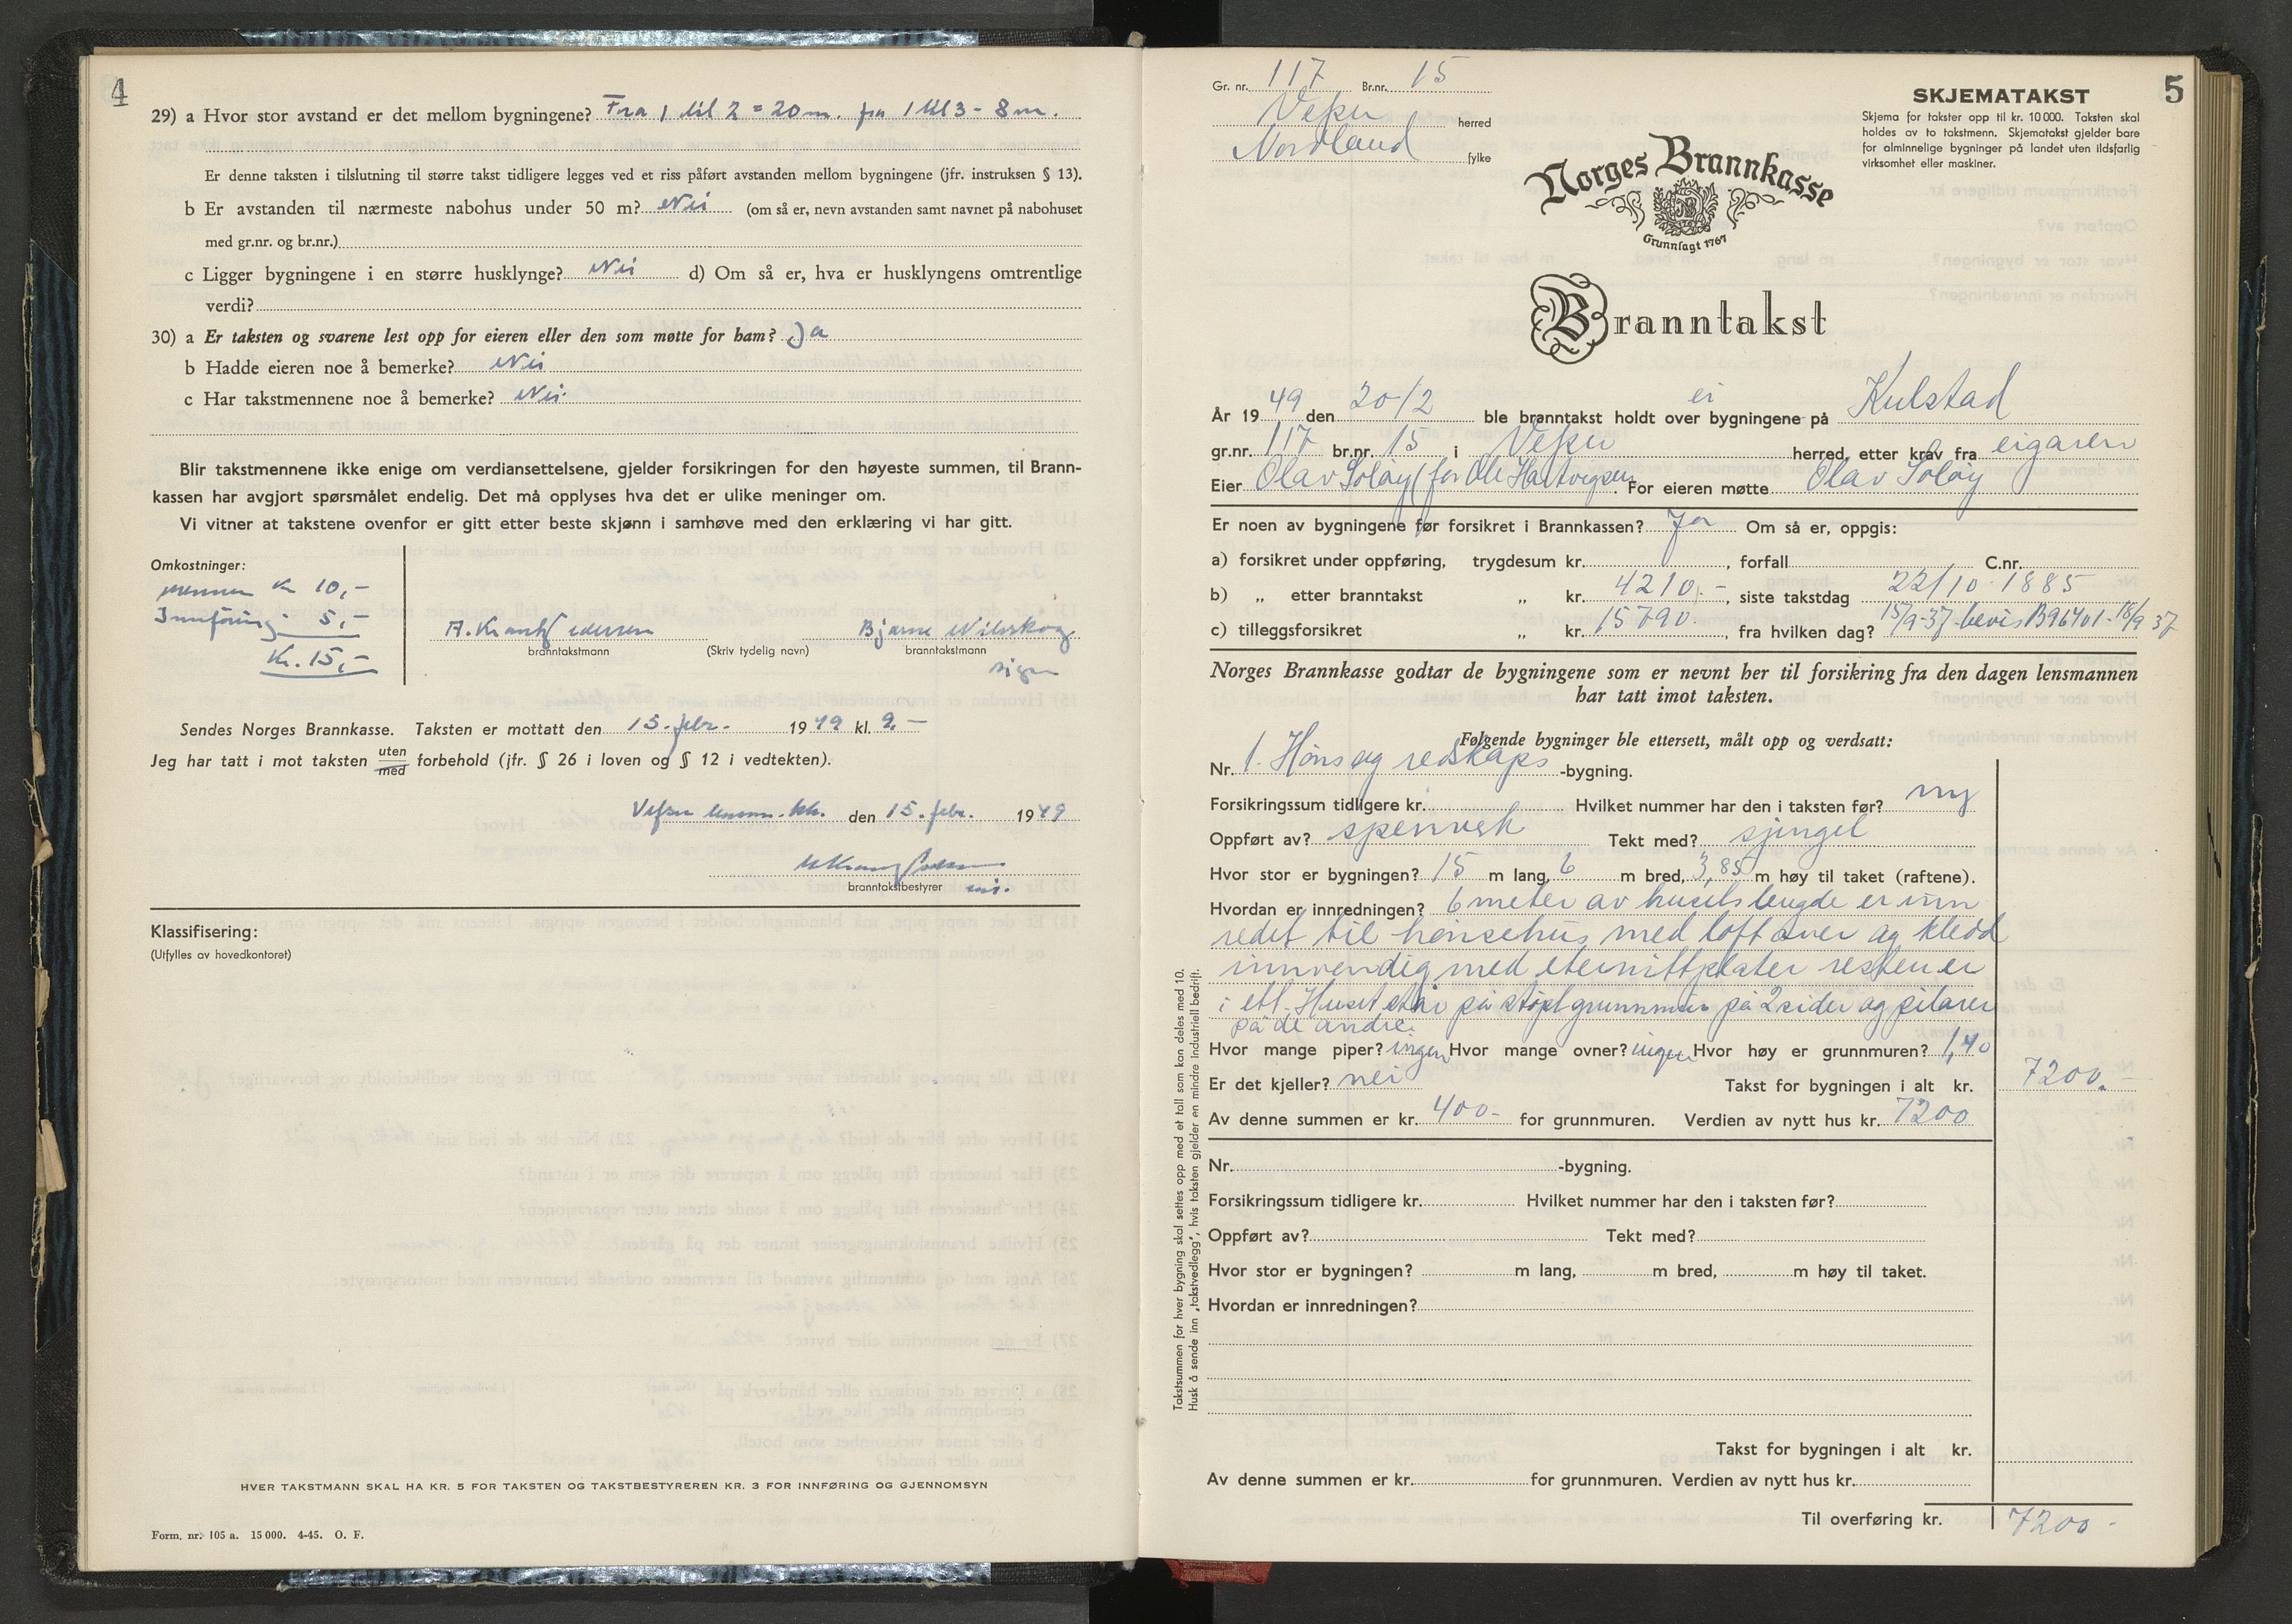 4
29) a Hvor stor avstand er det mellom bygningene? Fra 1 til 2 = 20 m. fra 1 til 3 - 8 m.
Er denne taksten i tilslutning til større takst tidligere legges ved et riss påført avstanden mellom bygningene (jfr. instruksen § 13).
b Er avstanden til nærmeste nabohus under 50 m? Nei (om så er, nevn avstanden samt navnet på nabohuset
med gr.nr. og br.nr.)
c Ligger bygningene i en större husklynge? Nei d) Om så er, hva er husklyngens omtrentlige
verdi?
30) a Er taksten og svarene lest opp for eieren eller den som møtte for ham? Ja
b Hadde eieren noe å bemerke? Nei
c Har takstmennene noe å bemerke? Nei
Blir takstmennene ikke enige om verdiansettelsene, gjelder forsikringen for den høyeste summen, til Brann-
kassen har avgjort spørsmålet endelig. Det må opplyses hva det er ulike meninger om.
Vi vitner at takstene ovenfor er gitt etter beste skjønn i samhøve med den erklæring vi har gitt.
Omkostninger:
mennene Kr 10,-
Innföring 5,-
Kr. 15,-
A. Krantz Pedersen
branntakstmann
(Skriv tydelig navn)
Bjarne Vilnskog
branntakstmann
sign
Sendes Norges Brannkasse. Taksten er mottatt den 15. febr. 1949 kl. 9.-
Jeg har tatt i mot taksten uten med forbehold (jfr. § 26 i loven og § 12 i vedtekten).
Vefsn lensm. ktr. den 15. febr. 1949
branntakstbestyrer
Klassifisering:
(Utfylles av hovedkontoret)
HVER TAKSTMANN SKAL HA KR. 5 FOR TAKSTEN OG TAKSTBESTYREREN KR. 3 FOR INNFØRING OG GJENNOMSYN
Form. nr. 105 a. 15 000. 4-45. O. F.
5
Gr. nr. 117 Br.nr. 15
Vefsn herred
Nordland fylke
SKJEMATAKST
Skjema for takster opp til kr. 10 000. Taksten skal
holdes av to takstmenn. Skjematakst gjelder bare
for alminnelige bygninger på landet uten ildsfarlig
virksomhet eller maskiner.
Norges Brannkasse
Grunnlagt 1767
Branntakst
År 1949 den 20/2 ble branntakst holdt over ei bygningene på Kulstad
gr.nr. 117 br.nr. 15 i Vefsn herred, etter krav fra eigaren
Eier Olav Soløy (for Ole Hartvigsen. For eieren møtte Olav Soløy
Er noen av bygningene før forsikret i Brannkassen? Ja Om så er, oppgis:
a) forsikret under oppføring, trygdesum kr. , forfall C.nr.
b) „ etter branntakst „ kr. 4210.-, siste takstdag 22/10-1885
c) tilleggsforsikret „ kr. 15790, fra hvilken dag? 15/9-37-bevis B96401-18/9 37
Norges Brannkasse godtar de bygningene som er nevnt her til forsikring fra den dagen lensmannen
har tatt imot taksten.
Følgende bygninger ble ettersett, målt opp og verdsatt:
Nr. 1. Höns og redskaps -bygning.
Forsikringssum tidligere kr. Hvilket nummer har den i taksten før? ny
Oppført av? spenverk Tekt med? sjingel
Hvor stor er bygningen? 15 m lang, 6 m bred, 3,85 m høy til taket (raftene).
Hvordan er innredningen? 6 meter av husets lengde er inn
redet til hönsehus med loft over og kledd
innvendig med eternittplater resten er
i ett. Huset står på støpt grunnmur på 2 sider og pilarer
på de andre.
Hvor mange piper? ingen Hvor mange ovner? ingen Hvor høy er grunnmuren? 1,40
Er det kjeller? nei Takst for bygningen i alt kr. 7200.-
Av denne summen er kr. 400- for grunnmuren. Verdien av nytt hus kr. 7200
Nr. -bygning.
Forsikringssum tidligere kr. Hvilket nummer har den i taksten før?
Oppført av? Tekt med?
Hvor stor er bygningen? m lang, m bred, m høy til taket.
Hvordan er innredningen?
Takst for bygningen i alt kr.
Av denne summen er kr. for grunnmuren. Verdien av nytt hus kr.
Til overføring kr. 7200-
Takstsummen for hver bygning skal settes opp med et tall som kan deles med 10.
Husk å sende inn „takstvedlegg", hvis taksten gjelder en mindre industriell bedrift.